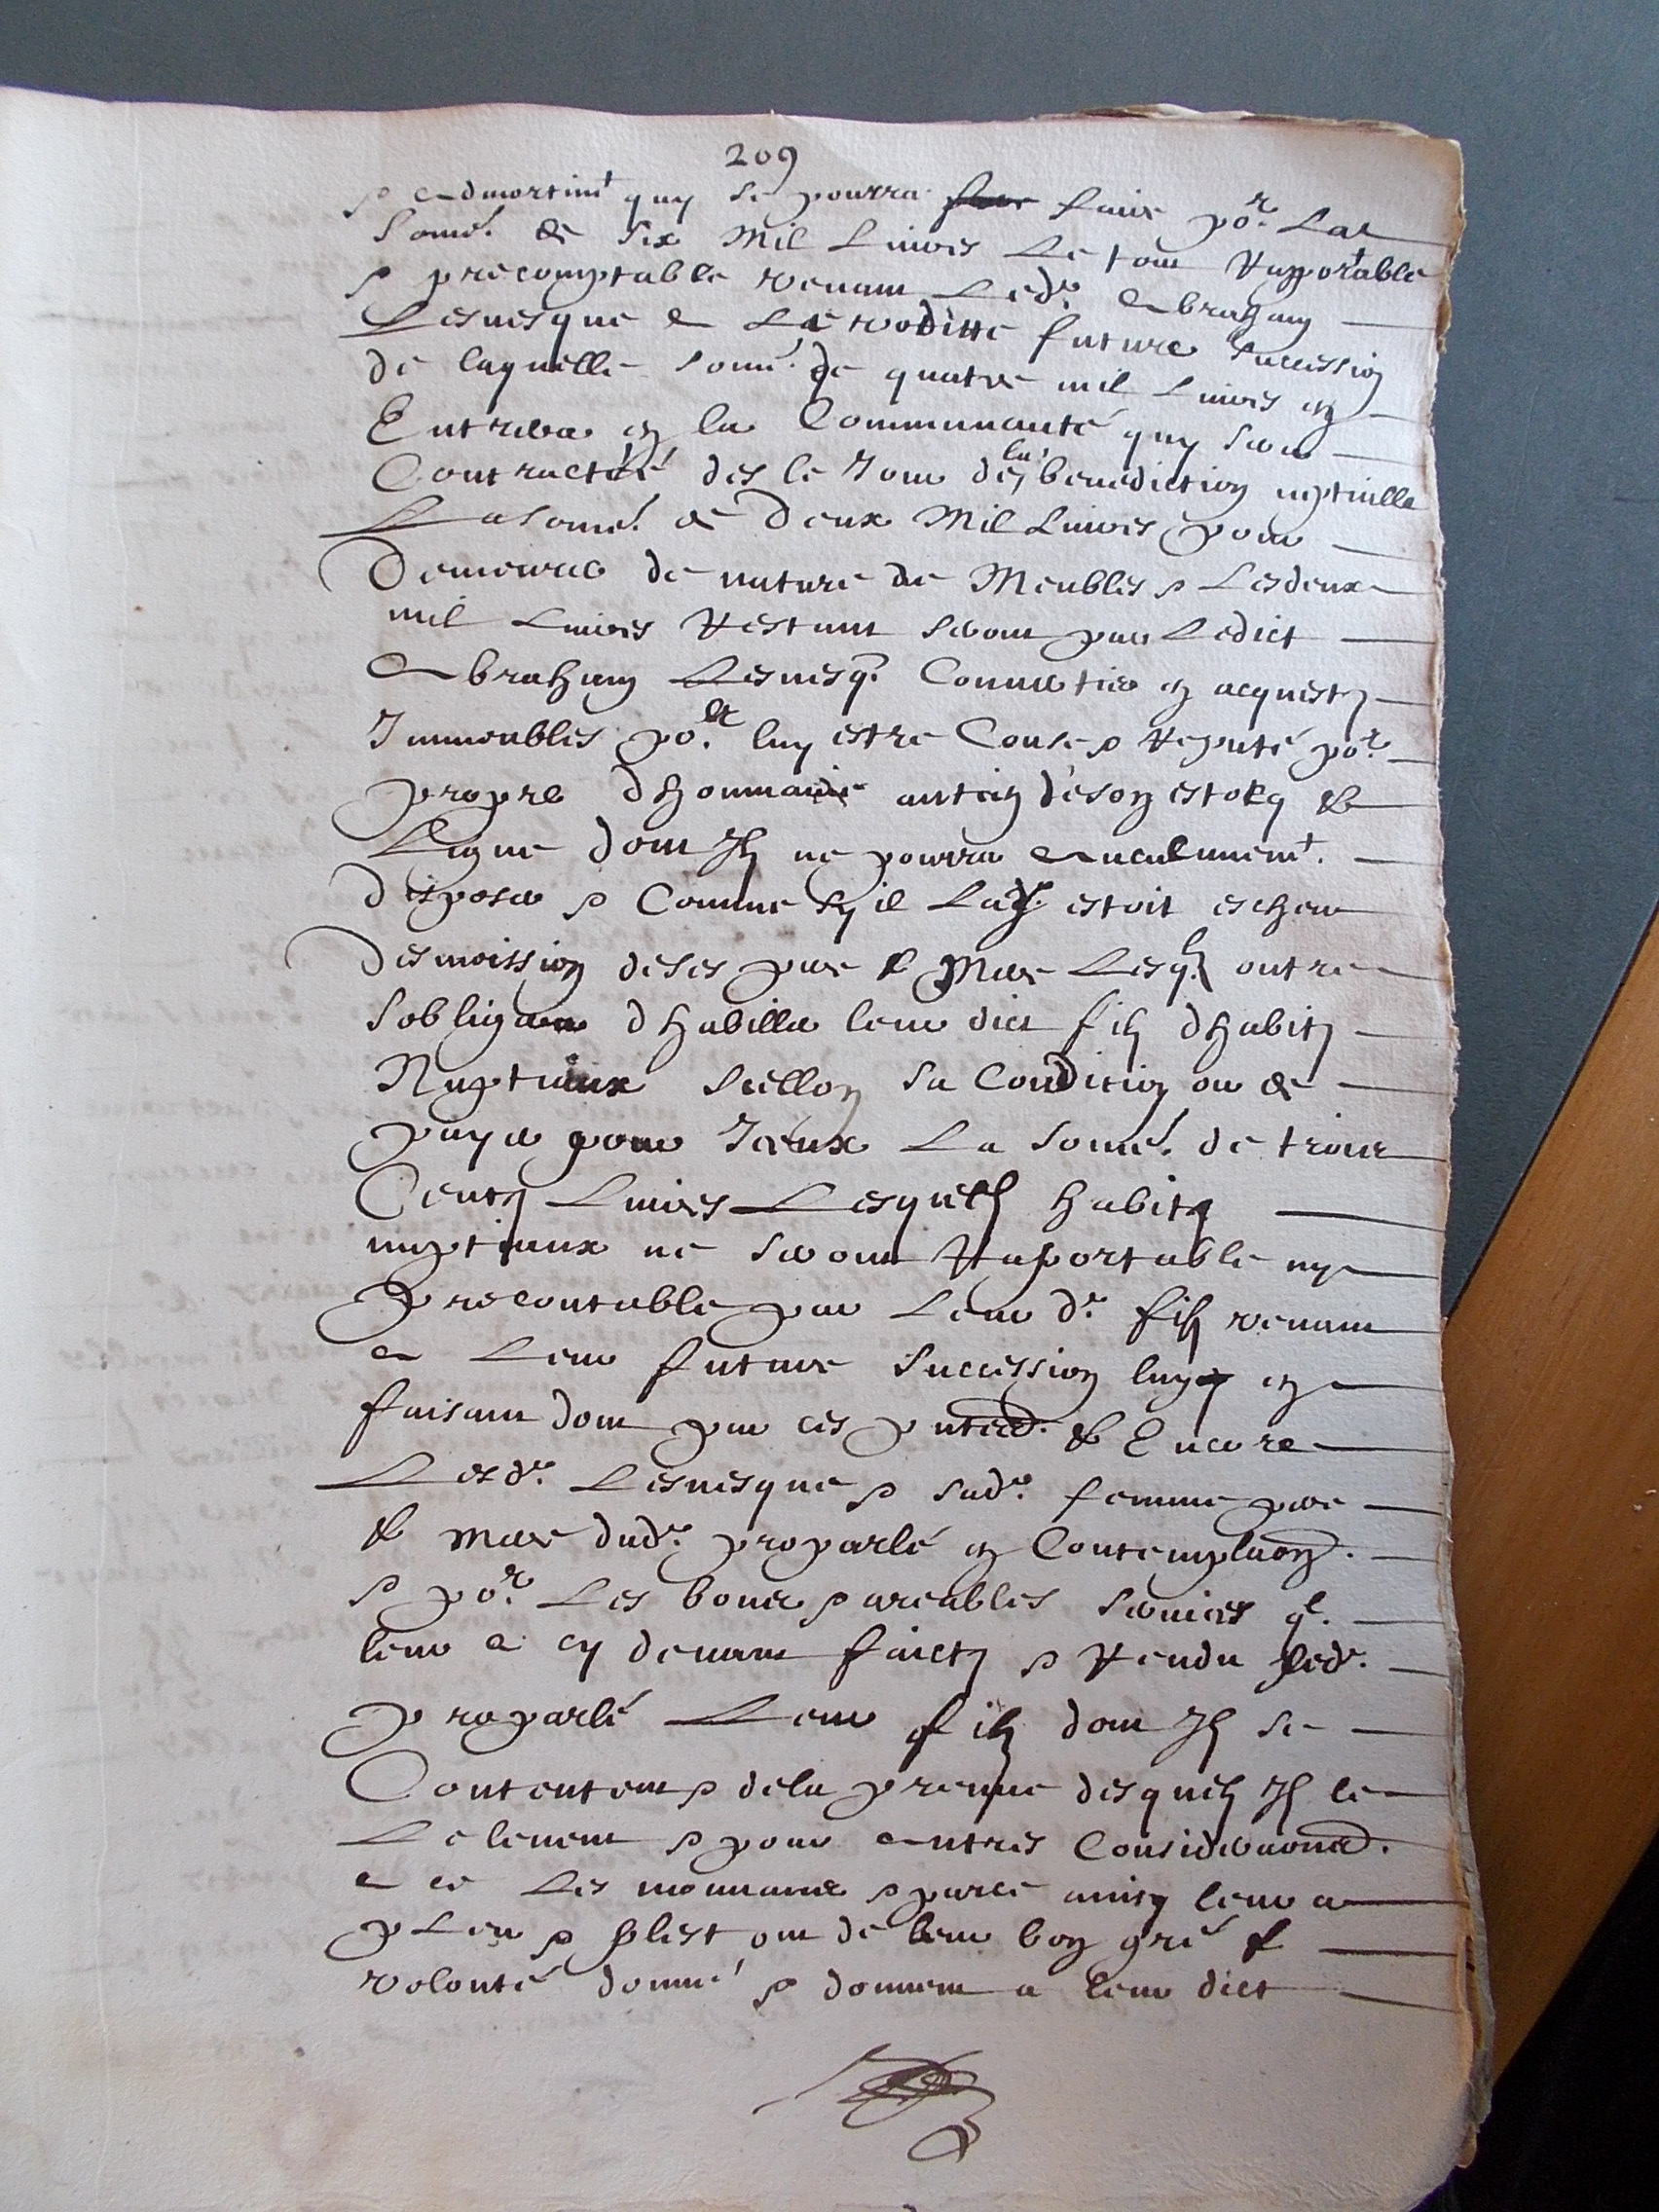 209
& admortimt quy se pourra faire por. La
some. de six Mil Livres Le tout Rapportable
& precomptable venant Ledr. Abraham
Levesque a La voditte future succession
de laquelle some. de quatre mil Livres en
Entrera en la Communauté quy sera
Contractéé des le Jour de la benediction nuptialle
La some. de Deux Mil Livres pour
Demeurer de nature de Meubles & Les deux
mil Livres Restant seront par Ledict
Abraham Levesq. Converties en acquestz
Immeubles por. et luy estre Censé & Reputé por.
propre dhommaine antien de son estocq &
Ligne dont Ilz ne pourra aucunemt.
disposer & Comme sy il Luy estoit escheu
Desmoission de ses pere & Mere Lesqlz outre
sobligent dhabiller leur dict filz dhabitz
Nuptiaux scellon sa Condition ou de
payer pour Iceux La some. de trois
Centz Livres Lesquelz habitz
nuptiaux ne seront Raportable ny
precontable par Leur dr. filz venant
a Leur future succession luy en
faisant don par ces pntes. & Encore
Lesdr. Levesque & sadr. femme pere
& mere dudr. proparlé en Contemplaon.
& por. Les bons & areables services q.
leur a cy devant faictz & Rendu Ledr.
proparlé Leur filz dont Ilz se
Contentent & de la preuve desquelz Ilz le
Relevent & pour autres Consideraons.
a ce Les mouvans & parce ainsy leur a
pleu & plest ont de leur bon gré &
volonté donné & donnent a leur dict